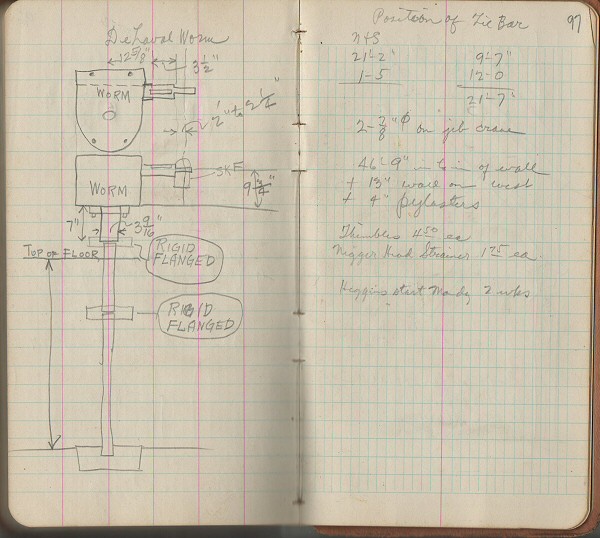 DeLaval Worm
12 5/8"
3 1/2"
WORM
1/2" to 2 1/4"
SKF
WORM
9 3/4"
7"
3 9/16"
TOP OF FLOOR
RIGID
FLANGED
RIGID
FLANGED
97
Position of Tie Bar
N & S
21'-2" 9'-7"
1-5 12-0
21'-7"
2-7/8" φ on jib crane
46'-9" in to in of wall
+ 13" wall on west
+ 4" pylasters
Thimbles 4.50 ea
Nigger Head Strainer 1.75 ea.
Higgins start Monday 2 wks